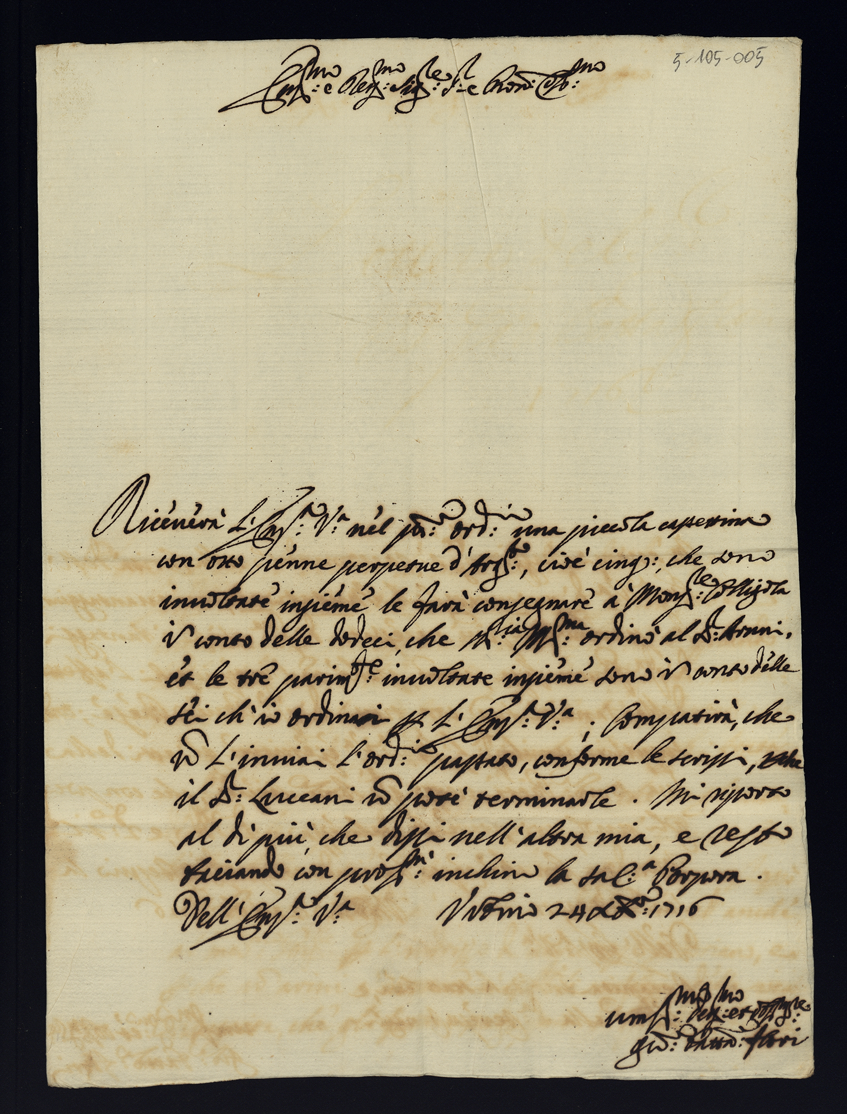 5-105-005
Em.mo e Rev.mo Sig.re S.r e Pron: Col.mo
Riceverà l'Em.za V.a nel pñte ord.io una piccola cassettina
con otto pienne perpetue d'Arg.to, cioè cinq:, che sono
involtate insieme le farà consegnare à Mons.re Colligola
conto delle dodeci, che ordinò al S.r Arnni,
et le trè parim.te involtate insieme sono conto delle
sei ch'io ordinai p l'Em.za V.a; Compatirà, che
nõ l'inviai l'ord.io passato, conforme le scrissi,
il S.r Luccani nõ potè terminarle. Mi riporto
al di più, che dissi nell'altra mia, e resto
baciando con prof.mo inchino la sac.a Porpora.
Dell'Em.za V.a Urbino 24 1716
um.mo dev.mo et
Gio: